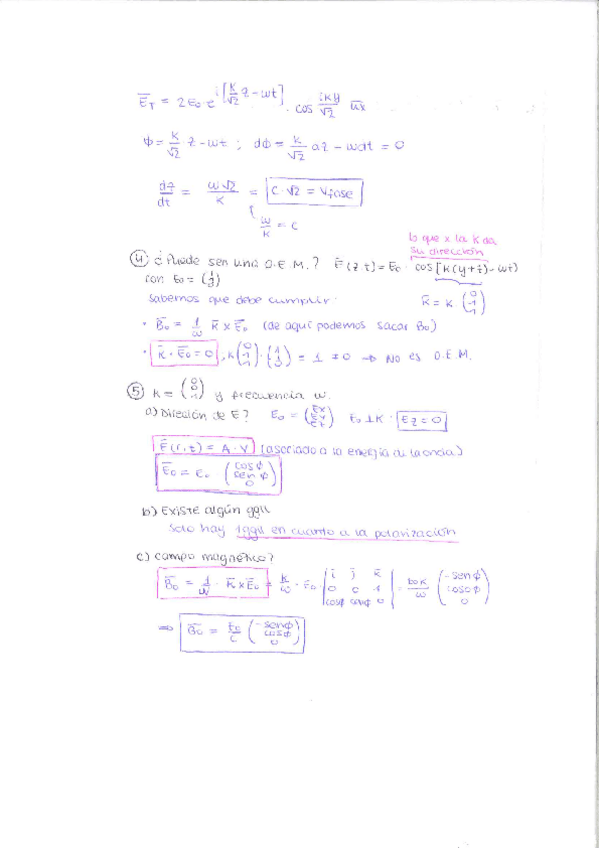 E̅_T = 2E₀ e^{i[k/√2 z - wt]} · cos iky/√2 u̅x
ϕ = k/√2 · z - wt ; dϕ = k/√2 dz - wdt = 0
dz/dt = w√2/k = c·√2 = Vfase
w/k = c
lo que x la k da
su dirección
④ ¿Puede ser una O.E.M.? E̅(z,t) = E₀ · cos[k(y+z) - wt)
con E₀ = (1 1 0)
Sabemos que debe cumplir:
k̅ = k · (0 1 1)
· B̅₀ = 1/w k̅ x E̅₀ (de aquí podemos sacar B₀)
· k̅ · E̅₀ = 0 , k(0 1 1) · (1 1 0) = 1 ≠ 0 → No es O.E.M.
⑤ k = (0 0 1) y frecuencia w.
a) Dirección de E? E₀ = (Ex Ey Ez) E₀ ⊥ k · Ez = 0
E̅(r,t) = A · V (asociado a la energía de la onda)
E̅₀ = e₀ (cosϕ senϕ 0)
b) Existe algún ggll
Solo hay 1ggll en cuanto a la polarización
c) campo magnético?
B̅₀ = 1/w · k̅ x E̅₀ = k/w · E₀ · |i j k 0 0 1 cosϕ senϕ 0| = E₀k/w (-senϕ cosϕ 0)
⇒ B̅₀ = E₀/c (-senϕ cosϕ 0)